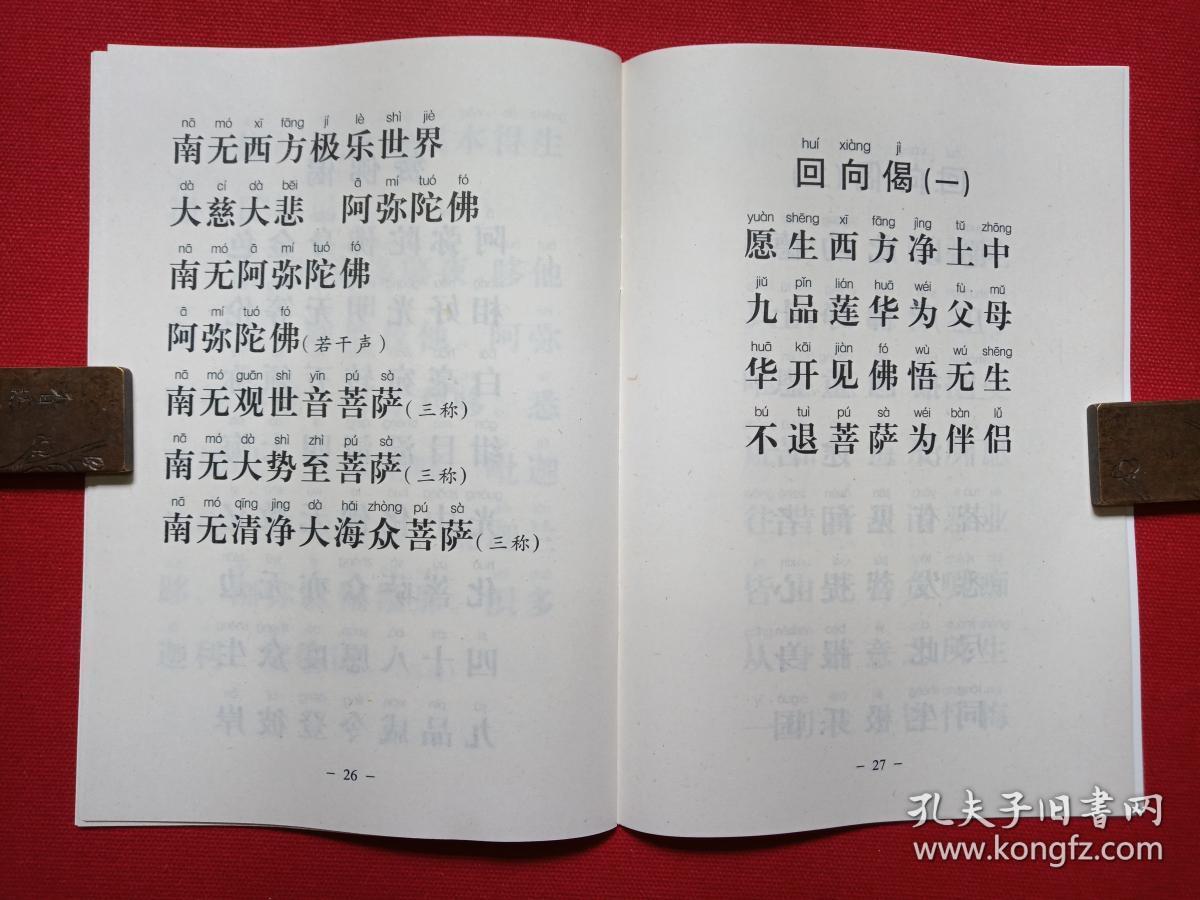 nā mó xī fāng jí lè shì jiè
南无西方极乐世界
dà cí dà bēi ā mí tuó fó
大慈大悲 阿弥陀佛
nā mó ā mí tuó fó
南无阿弥陀佛
ā mí tuó fó
阿弥陀佛(若干声)
nā mó guān shì yīn pú sà
南无观世音菩萨(三称)
nā mó dà shì zhì pú sà
南无大势至菩萨(三称)
nā mó qīng jìng dà hǎi zhòng pú sà
南无清净大海众菩萨(三称)
- 26 -
huí xiàng jì
回向偈(一)
yuàn shēng xī fāng jìng tǔ zhōng
愿生西方净土中
jiǔ pǐn lián huā wéi fù mǔ
九品莲华为父母
huā kāi jiàn fó wù wú shēng
华开见佛悟无生
bú tuì pú sà wéi bàn lǚ
不退菩萨为伴侣
- 27 -
孔夫子旧书网
www.kongfz.com